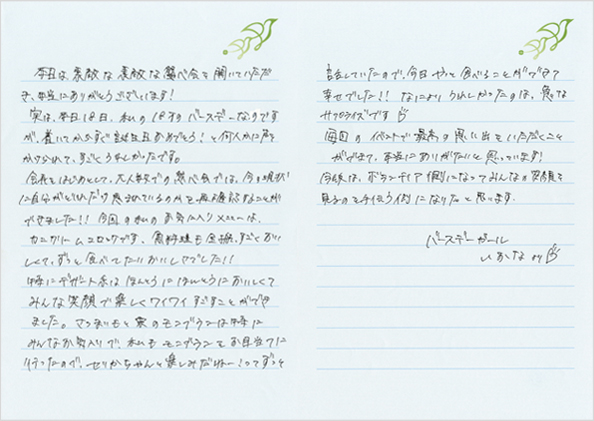 本日は、素敵な素敵な夢べ会を開いていただ
き、本当にありがとうございます!
実は、本日18日、私の18才のバースデーなのです
が、着いてからすぐ誕生日おめでとう!と何人かに声を
かけられて、すごくうれしかったです。
会長をはじめとして、大人数での夢べ会では、今の現状
に自分がどれだけ恵まれているのかを再確認することが
できました!!今回の私のお気に入りメニューは、
カニクリームコロッケです。魚料理も全部、すごくおい
しくて、ずっと食べてたいおいしさでした!!
特にデザート系はほんとうにほんとうにおいしくて
みんな笑顔で楽しくワイワイすごすことができ
ました。さつまいもと栗のモンブランは特に
みんなお気入りで、私もモンブランをお目当てに
行ったので、せりかちゃんと楽しみだねー!ってずっと
話していたので、今日やっと食べることができて
幸せでした!!なによりうれしかったのは、急な
サプライズです
毎回のイベントで最高の思い出をいただくこと
ができて、本当にありがたいと思っています!
今後は、ボランティア側になってみんなの笑顔を
見るのを手伝う側になりたいと思います。
バースデーガール
より